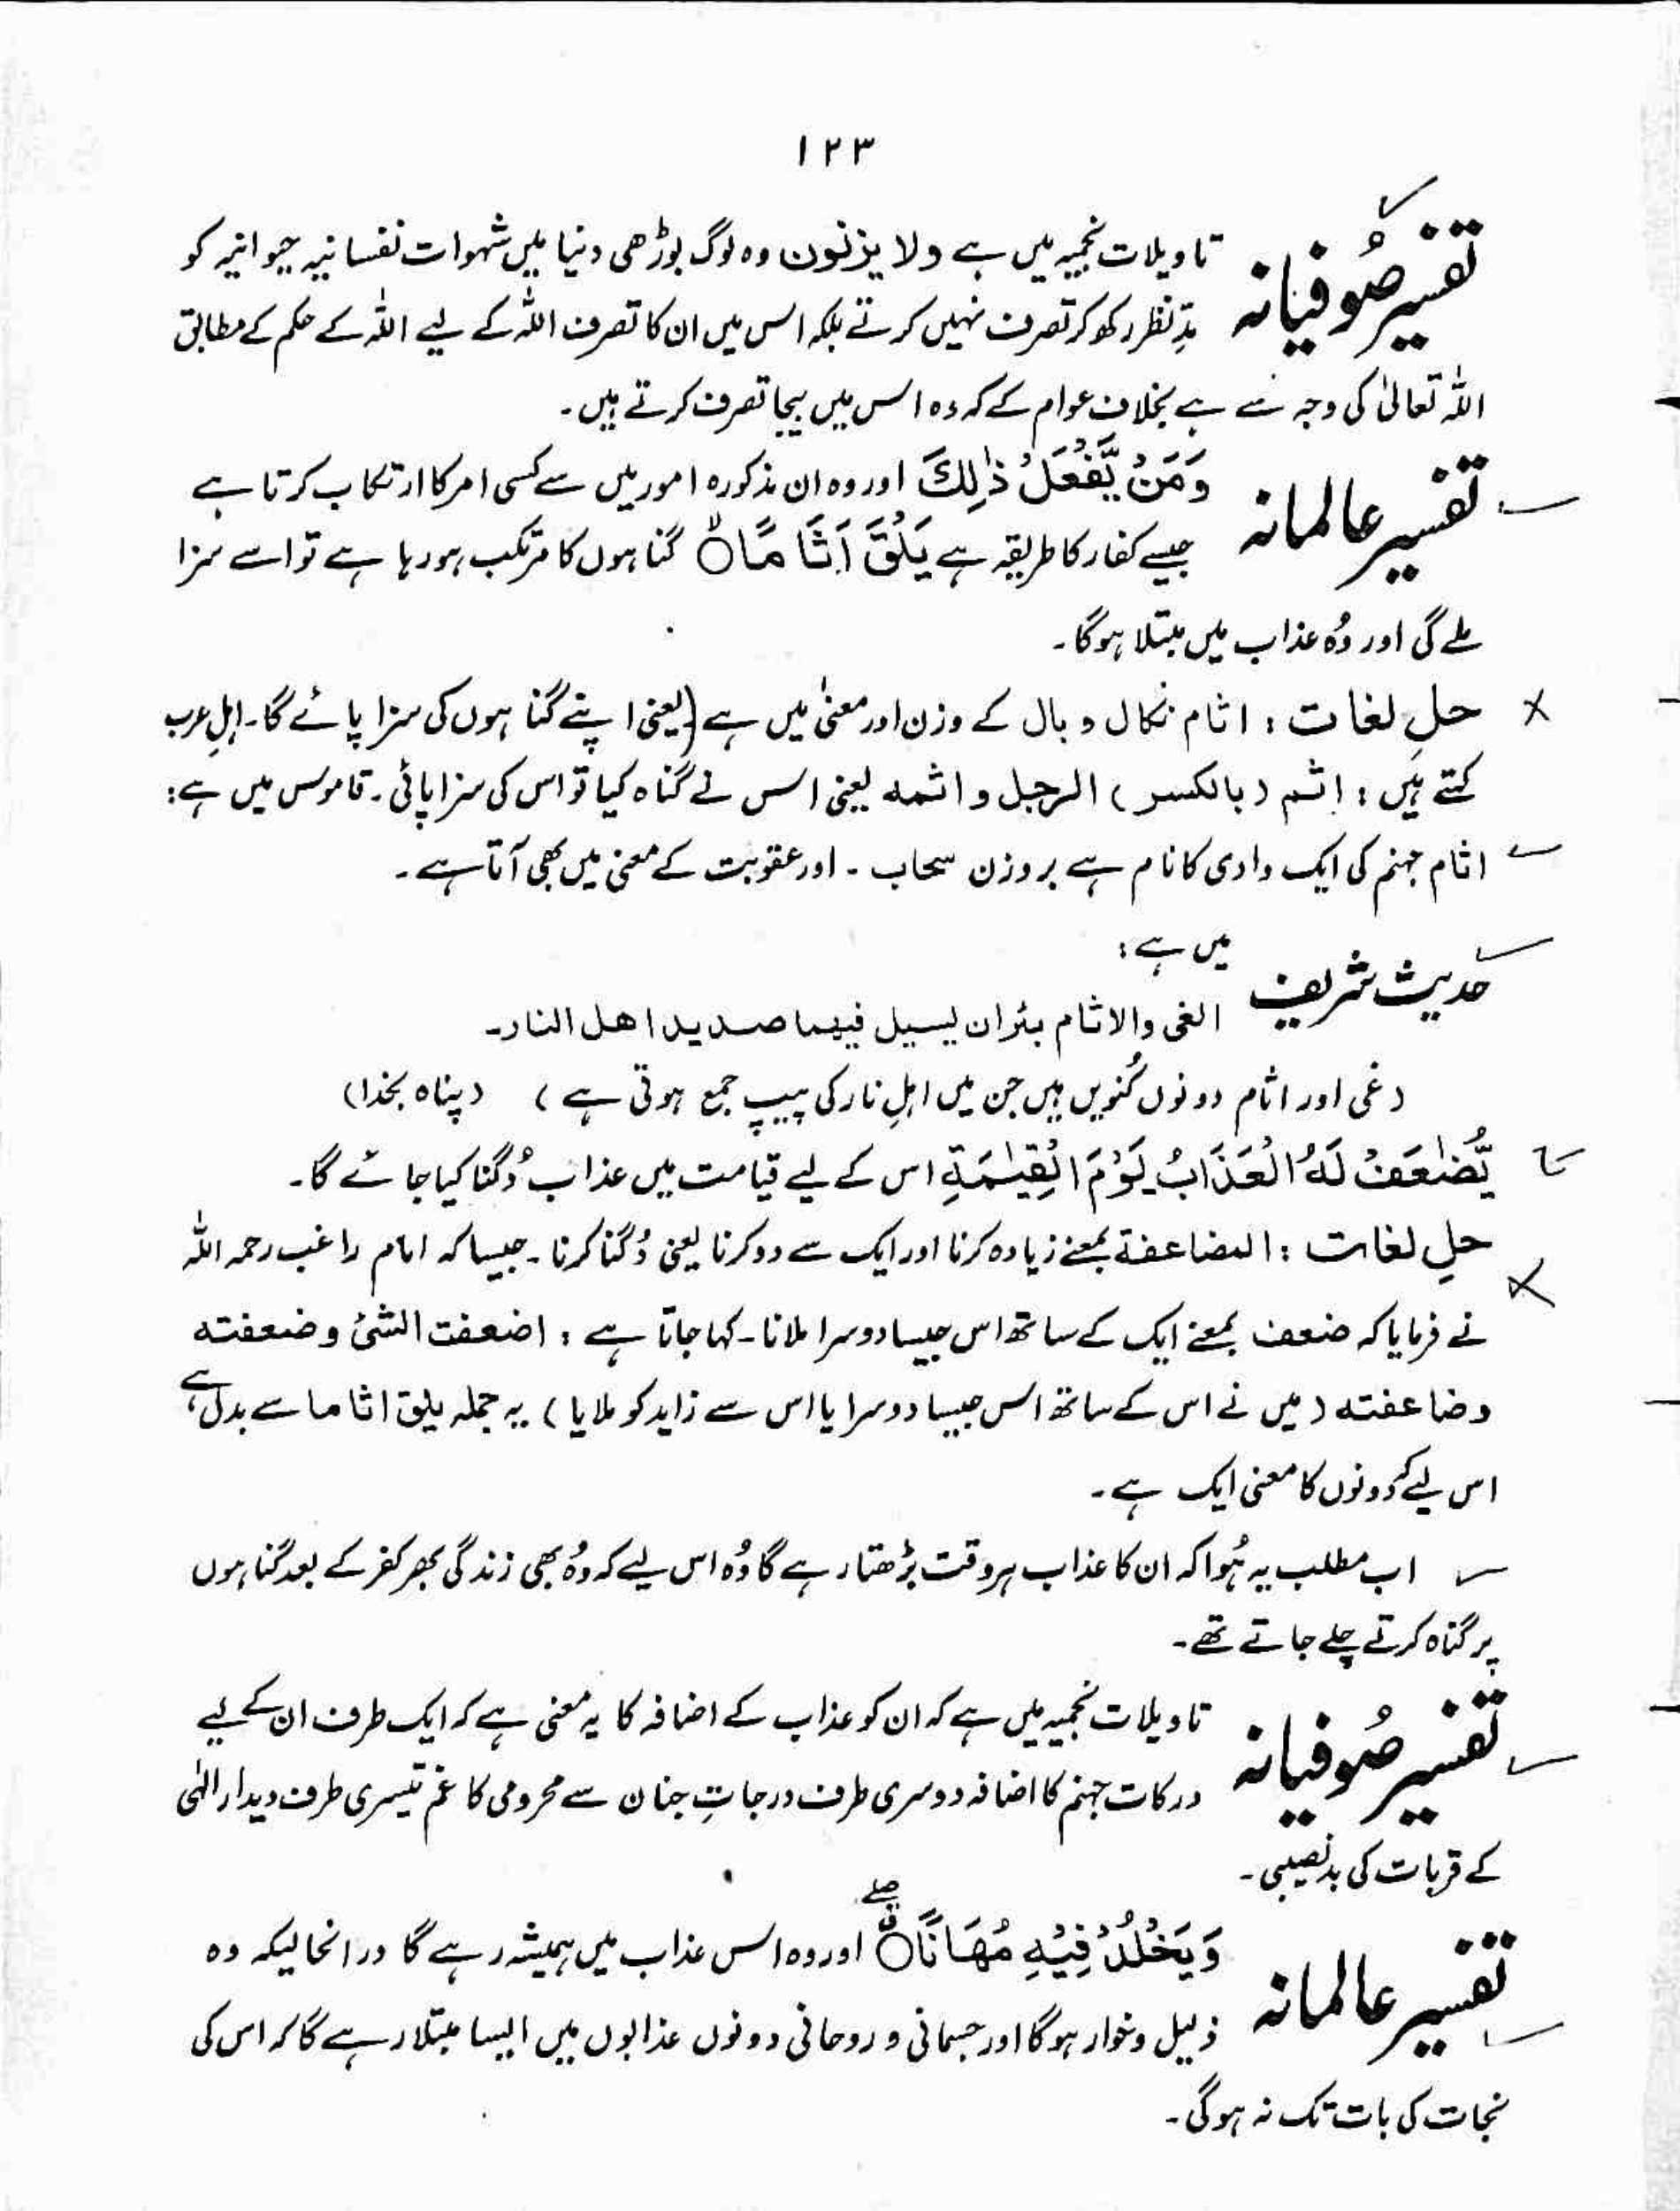 ۱۲۳
تفسیر صُوفیانہ تاویلات نجمیہ میں ہے ولا یزنون وہ لوگ بوڑھی دنیا میں شہوات نفسانیہ حیوانیہ کو
مدِ نظر رکھ کر تصرف نہیں کرتے بلکہ اس میں ان کا تصرف اللہ کے لیے اللہ کے حکم کے مطابق
اللہ تعالیٰ کی وجہ سے ہے بخلاف عوام کے کہ وہ اس میں بیجا تصرف کرتے ہیں۔
تفسیر عالمانہ وَمَنْ يَّفْعَلْ ذٰلِكَ اور وہ ان مذکورہ امور میں سے کسی امر کا ارتکاب کرتا ہے
جیسے کفار کا طریقہ ہے يَلْقَ اَثَامًا ۝ گناہوں کا مرتکب ہو رہا ہے تو اسے سزا
ملے گی اور وُہ عذاب میں مبتلا ہوگا۔
حلِ لغات : اثام نکال و بال کے وزن اور معنیٰ میں ہے (یعنی اپنے گناہوں کی سزا پائے گا۔ اہلِ عرب
کہتے ہیں : اثم (بالکسر) الرجل و اثمه یعنی اس نے گناہ کیا تو اس کی سزا پائی۔ قاموس میں ہے :
اثام جہنم کی ایک وادی کا نام ہے بروزن سحاب ۔ اور عقوبت کے معنی میں بھی آتا ہے۔
حدیث شریف میں ہے :
الغی والاثام بئران یسیل فیهما صدید اهل النار۔
(غی اور اثام دونوں کُنویں ہیں جن میں اہلِ نار کی پیپ جمع ہوتی ہے ) (پناہ بخدا)
يُّضٰعَفْ لَهُ الْعَذَابُ يَوْمَ الْقِيٰمَةِ اس کے لیے قیامت میں عذاب دُگنا کیا جائے گا۔
حلِ لغات : المضاعفة بمعنے زیادہ کرنا اور ایک سے دو کرنا یعنی دُگنا کرنا ۔ جیسا کہ امام راغب رحمہ اللہ
نے فرمایا کہ ضعف بمعنے ایک کے ساتھ اس جیسا دوسرا ملانا۔ کہا جاتا ہے : اضعفت الشئ و ضعفته
وضاعفته (میں نے اس کے ساتھ اس جیسا دوسرا یا اس سے زاید کو ملایا ) یہ جملہ یلق اثاما سے بدل ہے،
اس لیے کہ دونوں کا معنی ایک ہے۔
اب مطلب یہ ہُوا کہ ان کا عذاب ہر وقت بڑھتا رہے گا وُہ اس لیے کہ وُہ بھی زندگی بھر کفر کے بعد گناہوں
پر گناہ کرتے چلے جاتے تھے۔
تفسیر صُوفیانہ تاویلات نجمیہ میں ہے کہ ان کو عذاب کے اضافہ کا یہ معنی ہے کہ ایک طرف ان کے لیے
درکات جہنم کا اضافہ دوسری طرف درجاتِ جنان سے محرومی کا غم تیسری طرف دیدار الٰہی
کے قربات کی بدنصیبی۔
تفسیر عالمانہ وَيَخْلُدْ فِيْهٖ مُهَانًا ۝ صلے اور وہ اس عذاب میں ہمیشہ رہے گا درانحالیکہ وہ
ذلیل و خوار ہوگا اور جسمانی و روحانی دونوں عذابوں میں ایسا مبتلا رہے گا کہ اس کی
نجات کی بات تک نہ ہوگی۔